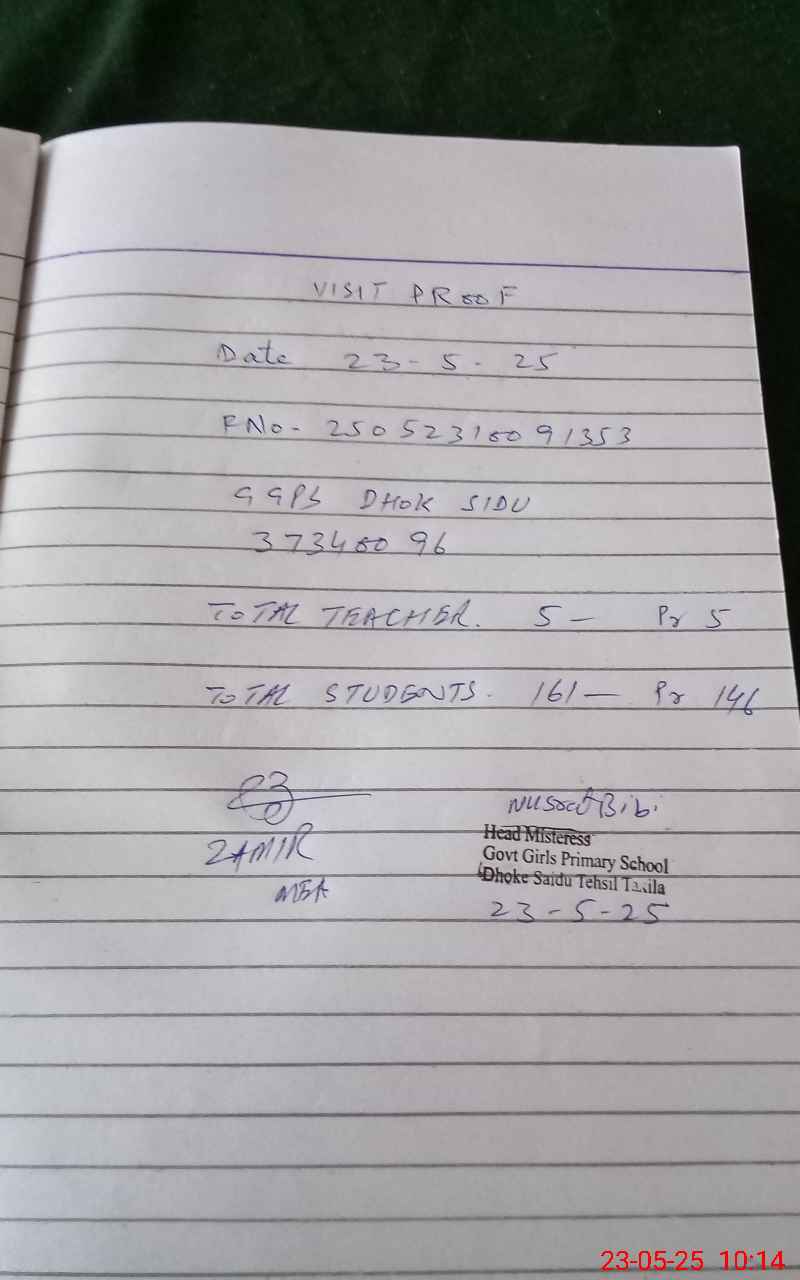 VISIT PROOF
Date 23-5-25
FNo- 25052310091353
GGPS DHOK SIDU
37340096
TOTAL TEACHER. 5 - Pr 5
TOTAL STUDENTS. 161 - Pr 146
ZAMIR
MEA
Nusrat Bibi
Head Misteress
Govt Girls Primary School
Dhoke Saidu Tehsil Taxila
23-5-25
23-05-25 10:14